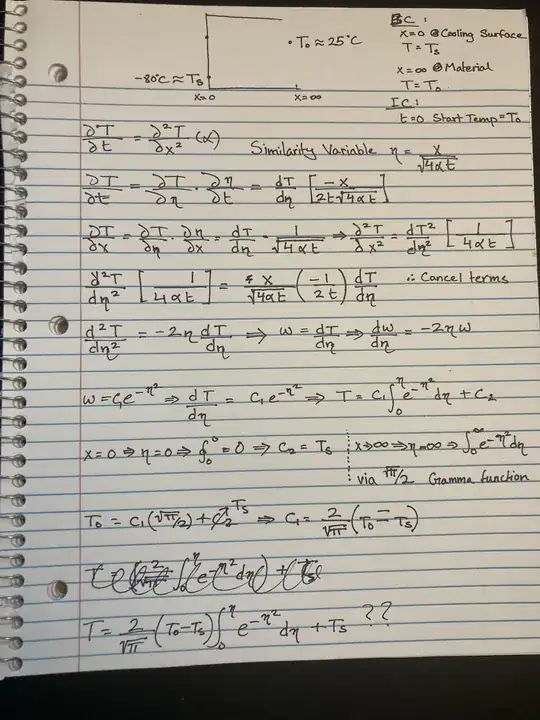 BC:
x=0 @ Cooling Surface
T=Ts
x=∞ @ Material
T=To
IC:
t=0 Start Temp=To
• To ≈ 25°C
-80°C ≈ Ts
x=0 x=∞
∂T/∂t = ∂²T/∂x² (α) Similarity Variable η = x/√4αt
∂T/∂t = ∂T/∂η · ∂η/∂t = dT/dη [-x/2t√4αt]
∂T/∂x = ∂T/∂η · ∂η/∂x = dT/dη · 1/√4αt ⇒ ∂²T/∂x² = dT²/dη² [1/4αt]
d²T/dη² [1/4αt] = x/√4αt (-1/2t) dT/dη ∴ Cancel terms
d²T/dη² = -2η dT/dη ⇒ w = dT/dη ⇒ dw/dη = -2ηw
w = C₁e^-η² ⇒ dT/dη = C₁e^-η² ⇒ T = C₁∫₀^η e^-η² dη + C₂
x=0 ⇒ η=0 ⇒ ∮₀⁰ = 0 ⇒ C₂ = Ts
x→∞ ⇒ η=∞ ⇒ ∫₀^∞ e^-η² dη
via √π/2 Gamma function
To = C₁(√π/2) + C₂ Ts ⇒ C₁ = 2/√π (To - Ts)
T = 2/√π (To-Ts) ∫₀^η e^-η² dη + Ts ??